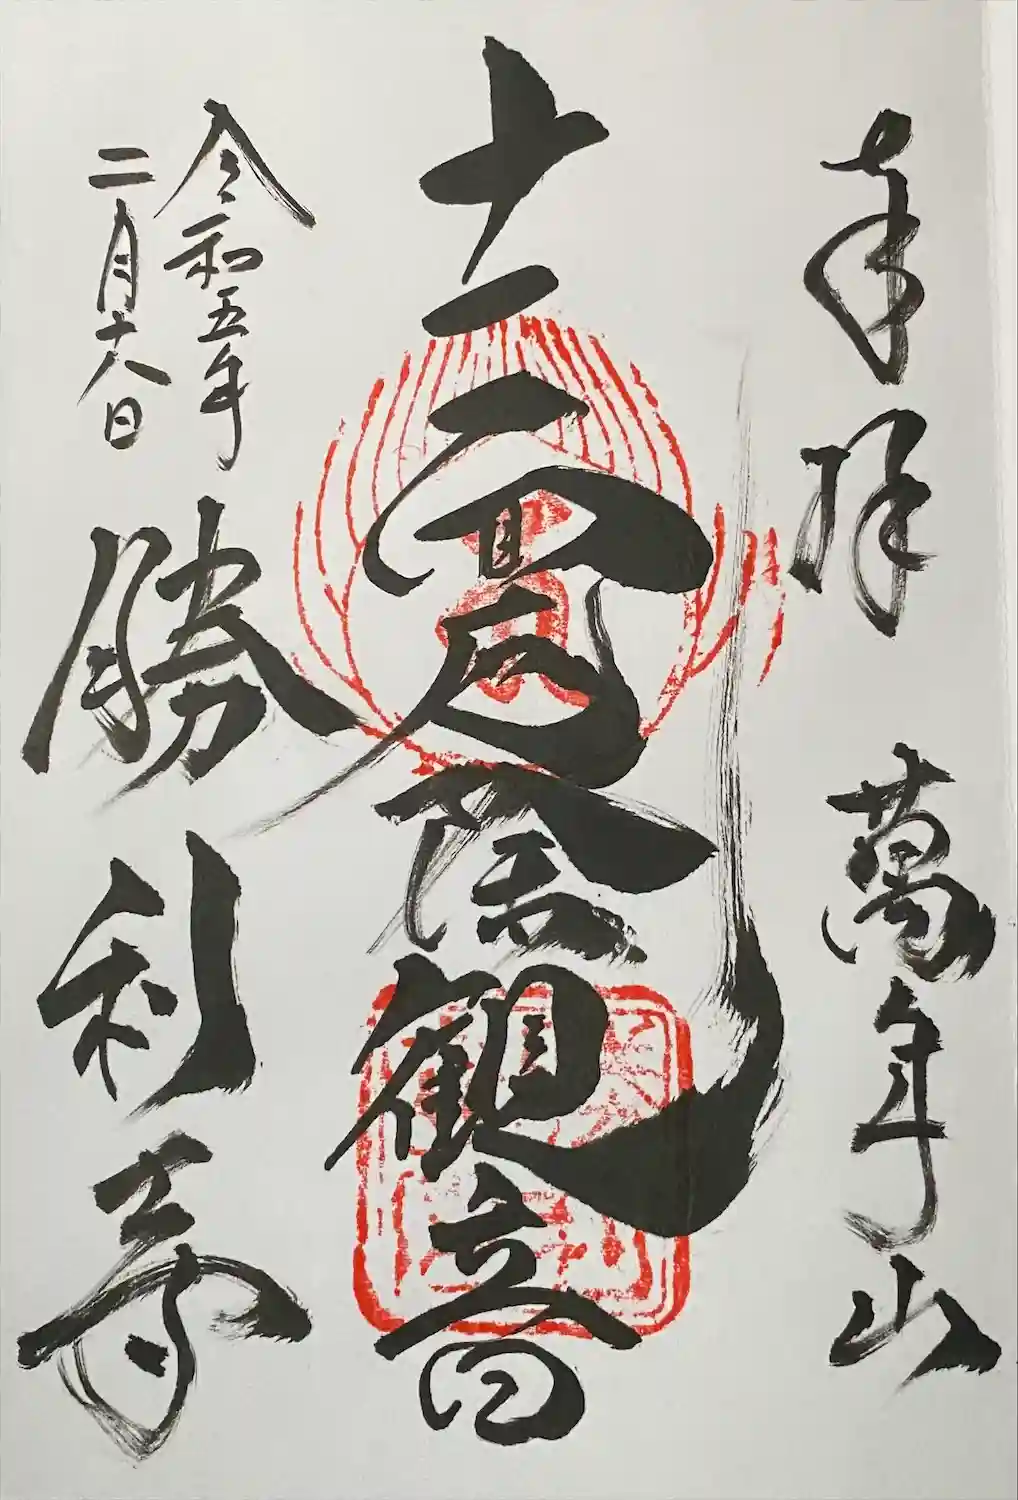 奉拝 萬年山
十一面厄除観音
令和五年
二月十八日
勝利寺